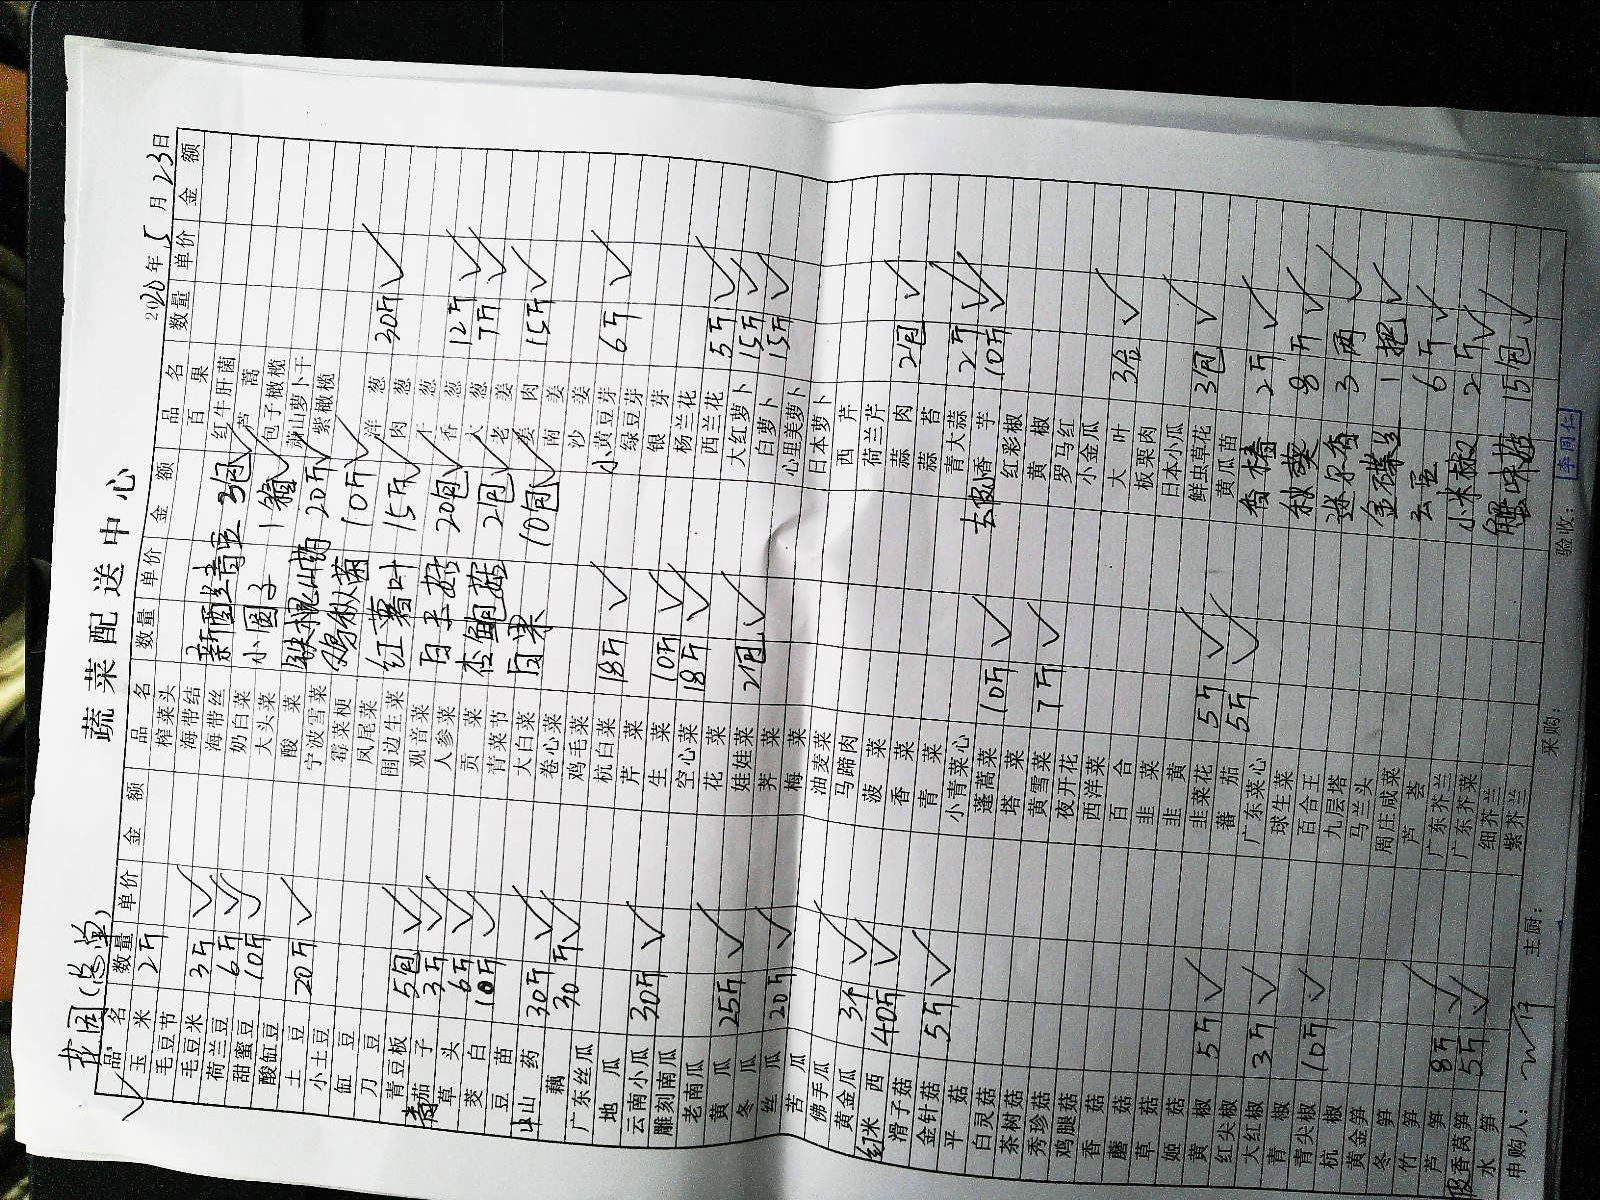 花园(总单)
蔬菜配送中心
2020年5月23日
品名 数量 单价 金额 品名 数量 单价 金额 品名 数量 单价 金额
玉米 2斤
毛豆节
毛豆米 3斤
荷兰豆 6斤
甜蜜豆 10斤
酸缸豆
土豆 20斤
小土豆
缸豆
刀豆
青豆板 5包
茄子 3斤
草头 6斤
茭白 10斤
豆苗
山药 30斤
藕 30斤
广东丝瓜
地瓜
云南小瓜 30斤
雕刻南瓜
老南瓜
黄瓜 25斤
冬瓜
丝瓜 20斤
苦瓜
佛手瓜
黄金瓜 3个
红米西 40斤
滑子菇
金针菇 5斤
平菇
白灵菇
茶树菇
秀珍菇
鸡腿菇
香菇
蘑菇
草菇
姬菇
黄椒 5斤
红尖椒
大红椒 3斤
青椒
青尖椒 10斤
杭椒
黄金笋
冬笋
竹笋
芦笋 8斤
香莴笋 5斤
水笋
榨菜头
海带结
海带丝 新圆蛙青豆 3包
奶白菜
大头菜 小圆子 1箱
酸菜 铁棍山药 20斤
宁波雪菜
霉菜梗 鸡枞菌 10斤
凤尾菜
围边生菜 红薯叶 15斤
观音菜
人参菜 白玉菇 20包
贡菜
青菜节 杏鲍菇 2包
大白菜 白果 10包
卷心菜
鸡毛菜
杭白菜 18斤
芹菜
生菜 10斤
空心菜 18斤
花菜
娃娃菜 21包
荠菜
梅菜
油麦菜
马蹄肉
菠菜
香菜
青菜
小青菜心
蓬蒿菜 10斤
塔菜
黄雪菜 7斤
夜开花
西洋菜
百合
韭菜
韭黄
韭菜花 5斤
蕃茄 5斤
广东菜心
球生菜
百合王
九层塔
马兰头
周庄咸菜
芦荟
广东芥兰
广东芥菜
细芥兰
紫芥兰
百果
红牛肝菌
芦蒿
包子橄榄
萧山萝卜干
紫橄榄
洋葱 30斤
肉葱
干葱
香葱 12斤
大葱 7斤
老姜
姜肉 15斤
南姜
沙姜
小黄豆芽 6斤
绿豆芽
银芽
杨兰花
西兰花 5斤
大红萝卜 15斤
白萝卜 15斤
心里美萝卜
日本萝卜
西芹
荷兰芹
蒜肉 2包
蒜苔
青大蒜 2斤
去皮香芋 10斤
红彩椒
黄椒
罗马红
小金瓜
大叶 3合
板栗肉
日本小瓜
鲜虫草花 3包
黄瓜苗
香椿 2斤
秋葵 8斤
迷尔香 3两
金碟兰 1把
云豆 6斤
小米椒 2斤
蟹味菇 15包
申购人: 主厨: 采购: 验收: 李同仁